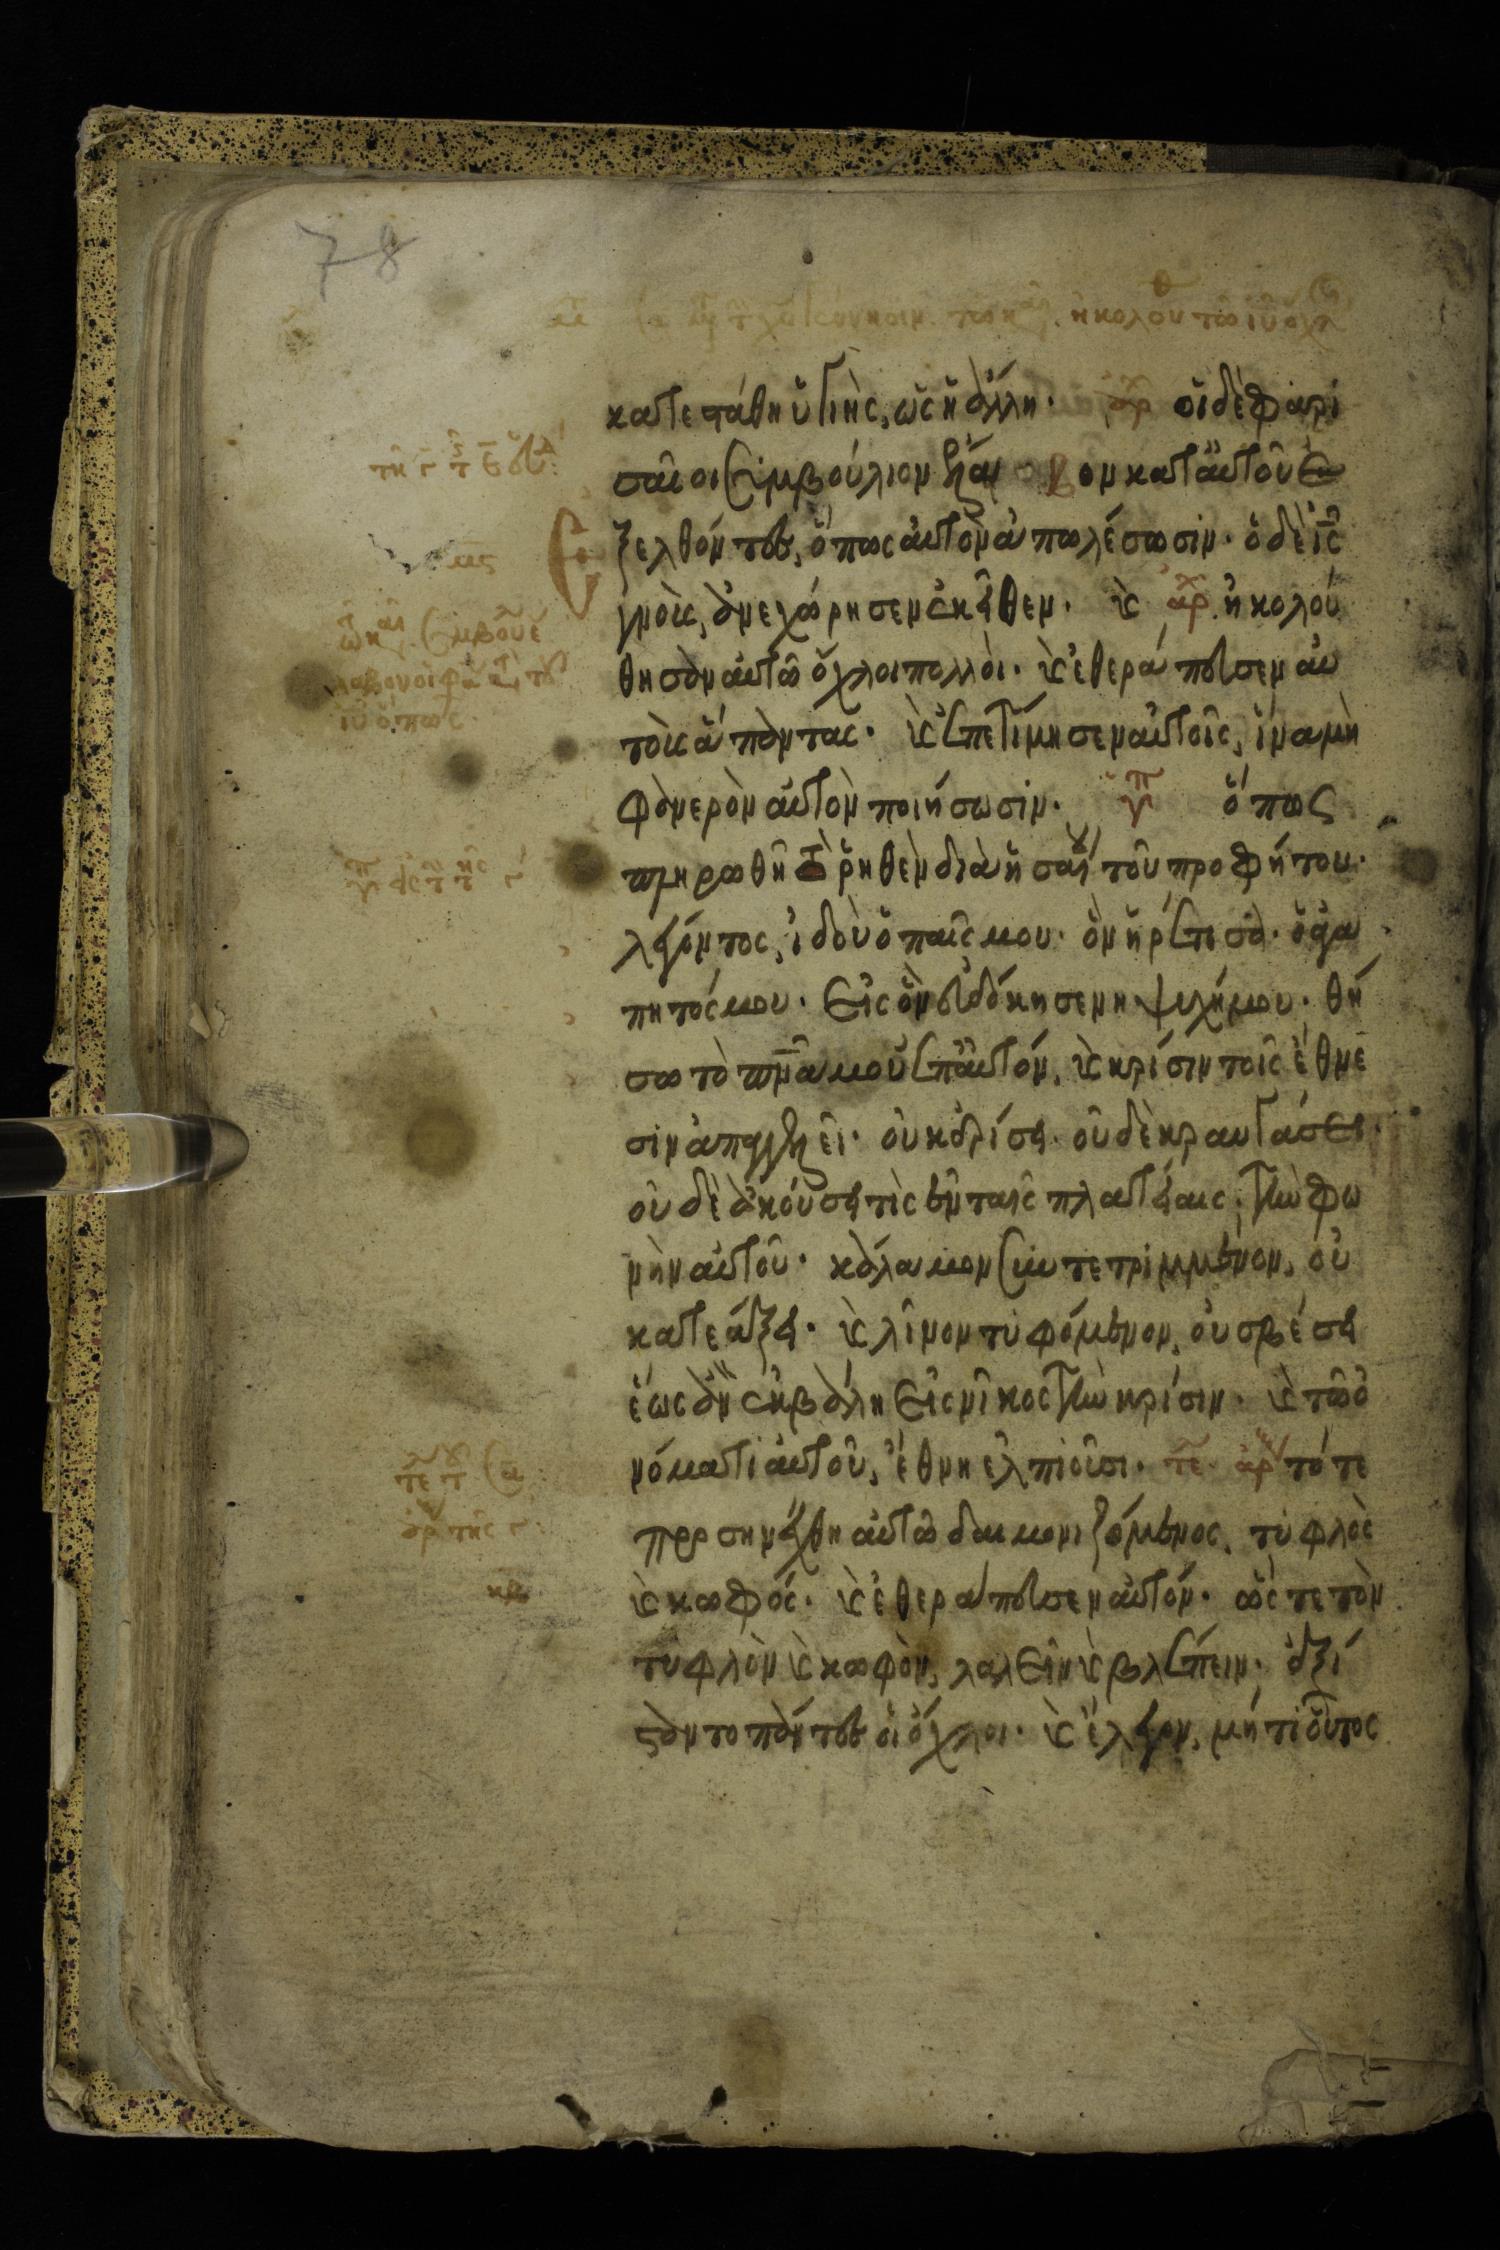 78
κατεστάθη ὑγιὴς, ὡς ἡ ἄλλη· ἀρχ οἱ δὲ φαρι
σαῖοι συμβούλιον ἔλαβον κατ αὐτοῦ ἐ
ξελθόντες, ὅπως αὐτὸν ἀπωλέσωσιν· ὁ δὲ ι̅ς̅
γνοὺς, ἀνεχώρησεν ἐκεῖθεν· κ ἀρχ ἠκολού
θησαν αὐτῶ ὄχλοι πολλοὶ· κ ἐθεράπευσεν αὐ
τοὺς ἅπαντας· κ ἐπετίμησεν αὐτοῖς, ἵνα μὴ
φανερὸν αὐτὸν ποιήσωσιν· ὑπ ὅπως
πληρωθῆ τὸ ῥηθὲν διὰ ἡσαΐου τοῦ προφήτου·
λέγοντος, ἰδοὺ ὁ παῖς μου· ὃν ἡρέτισα· ὁ ἀγα
πητός μου· εἰς ὃν εὐδόκησεν η ψυχή μου· θή
σω τὸ π̅ν̅α̅ μου ἐπ αὐτόν, κ κρίσιν τοῖς ἔθνε
σιν ἀπαγγελεῖ· οὐκ ἐρίσει· οὐδὲ κραυγάσει·
οὐδὲ ἀκούσει τὶς ἐν ταῖς πλατείαις, τὴν φω
νὴν αὐτοῦ· κάλαμον συντετριμμένον, οὐ
κατεάξει· κ λῖνον τυφόμενον, οὐ σβέσει
ἕως ἂν ἐκβάλη εἰς νῖκος τὴν κρίσιν· κ τῶ ὀ
νόματι αὐτοῦ, ἔθνη ἐλπιοῦσι· τε ἀρχ τότε
προσηνέχθη αὐτῶ δαιμονιζόμενος, τυφλὸς
κ κωφός· κ ἐθεράπευσεν αὐτόν· ὥστε τὸν
τυφλὸν κ κωφὸν, λαλεῖν κ βλέπειν· ἐξί
σταντο πάντες οἱ ὄχλοι· κ ἔλεγον, μήτι οὗτος